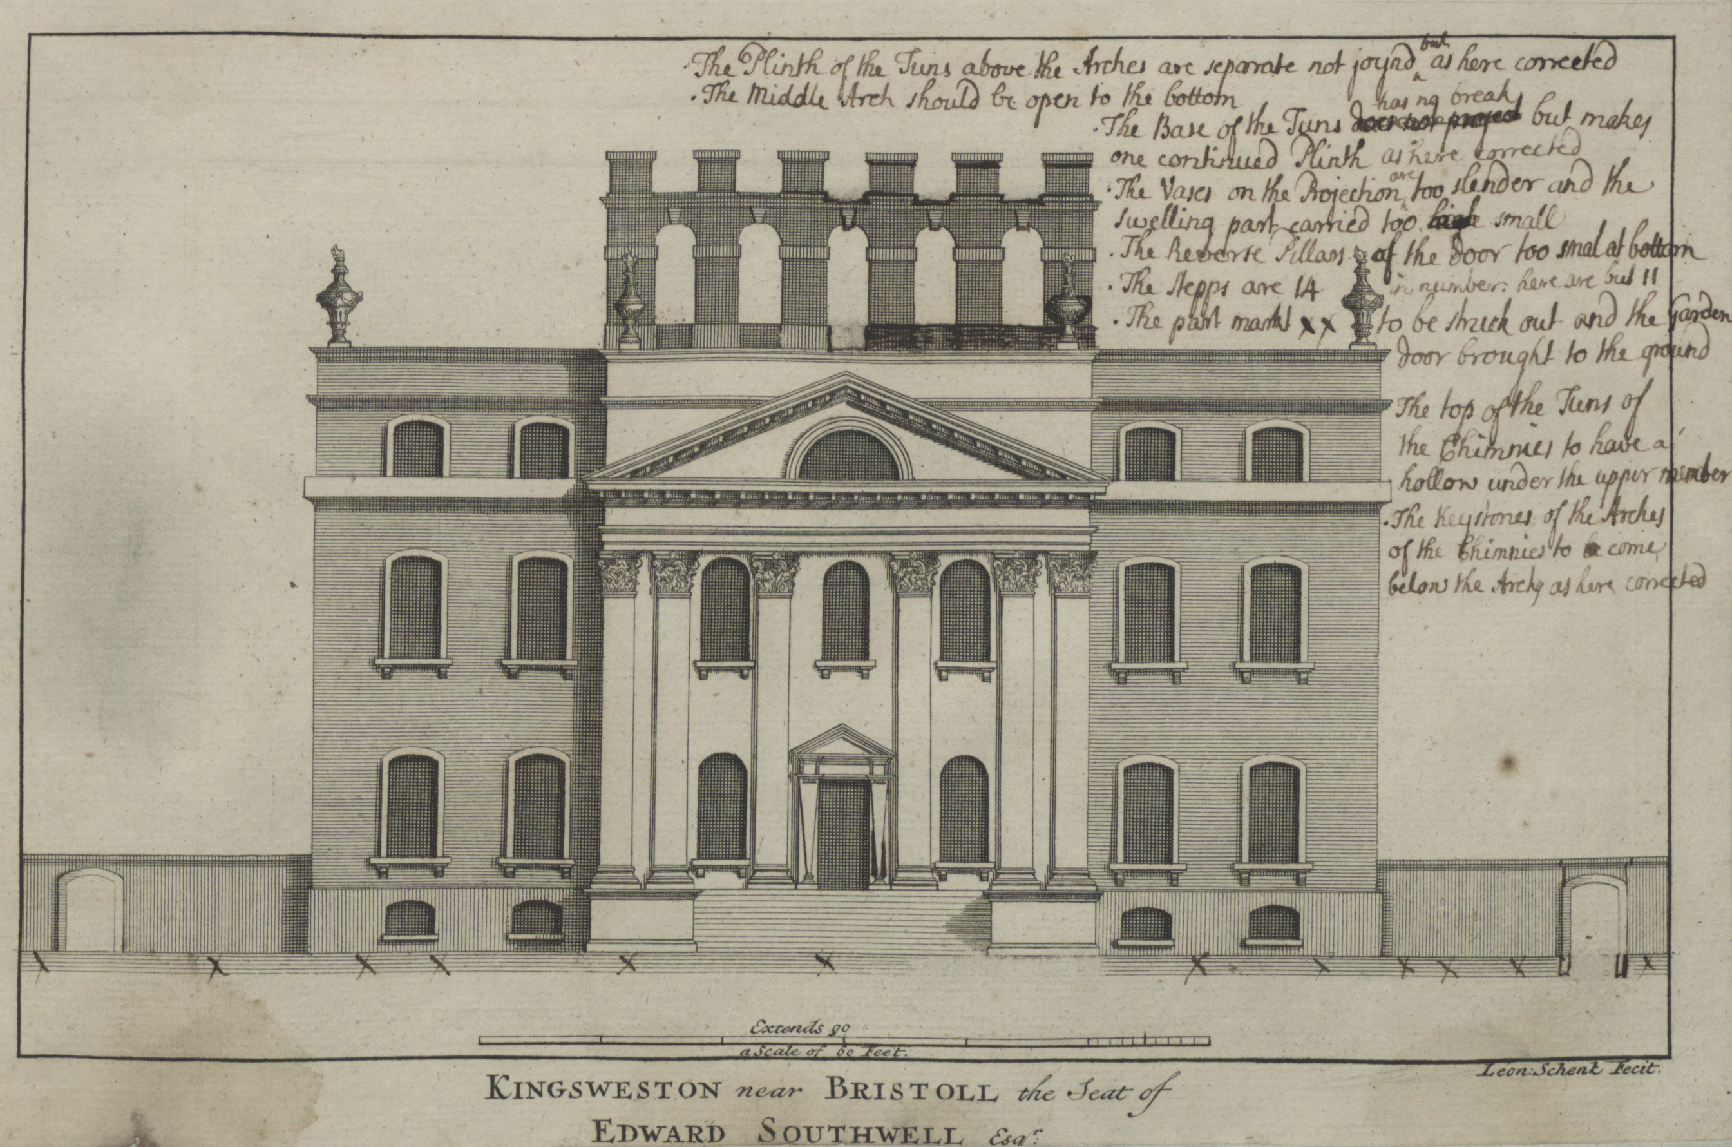 .The Plinth of the Tuns above the Arches are separate not joynd but as here corrected
.The Middle Arch should be open to the bottom
.The Base of the Tuns does not project has no break but makes
one continued Plinth as here corrected
.The Vases on the Projection are too slender and the
swelling part carried too high small
.The Reverse Pillars of the Door too smal at bottom
.The stepps are 14 in number: here are but 11
.The part markt xx to be struck out and the Garden
door brought to the ground
The top of the Tuns of
the Chimnies to have a
hollow under the upper member
.The Keystones of the Arches
of the Chimnies to come
below the Archs as here corrected
Extends 90
a Scale of 60 Feet.
Leon: Schenk Fecit.
KINGSWESTON near BRISTOLL the Seat of
EDWARD SOUTHWELL Esqr.